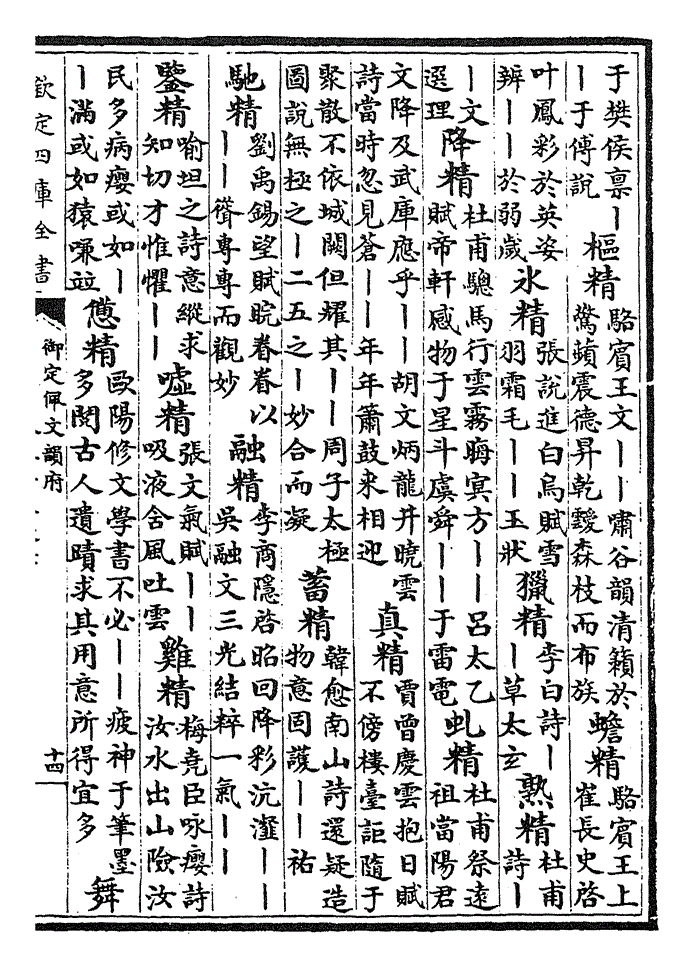 于樊侯禀｜｜于傅說 樞精 駱賓王文｜｜嘯谷韻清籟於驚蘋震德昇乾靉森枝而布族 蟾精 駱賓王上崔長史啓
叶鳳彩於英姿辨｜｜於弱歲 氷精 張說進白烏賦雪羽霜毛｜｜玉狀 獵精 李白詩｜｜草太玄 熟精 杜甫詩｜
｜文選理 降精 杜甫驄馬行雲霧晦冥方｜｜呂太乙賦帝軒感物于星斗虞舜｜｜于雷電 虬精 杜甫祭遠祖當陽君
文降及武庫應乎｜｜胡文炳龍井曉雲詩當時忽見蒼｜｜年年簫鼓来相迎 真精 賈曾慶雲抱日賦不傍樓臺詎隨于
聚散不依城闕但耀其｜｜周子太極圖說無極之｜二五之｜妙合而凝 蓄精 韓愈南山詩還疑造物意固護｜｜祐
馳精 劉禹錫望賦睆眷眷以｜｜專專而觀妙 融精 李商隱啓昭回降彩沆瀣｜｜吳融文三光結粹一氣｜｜
鑒精 喻坦之詩意縱求知切才惟懼｜｜ 嘘精 張文氣賦｜｜吸液含風吐雲 難精 梅堯臣咏癭詩汝水出山險汝
民多病癭或如｜｜滿或如猿嗛竝 憊精 歐陽修文學書不必｜｜疲神于筆墨多閱古人遺蹟求其用意所得宜多 舞
欽定四庫全書
御定佩文韻府
十四